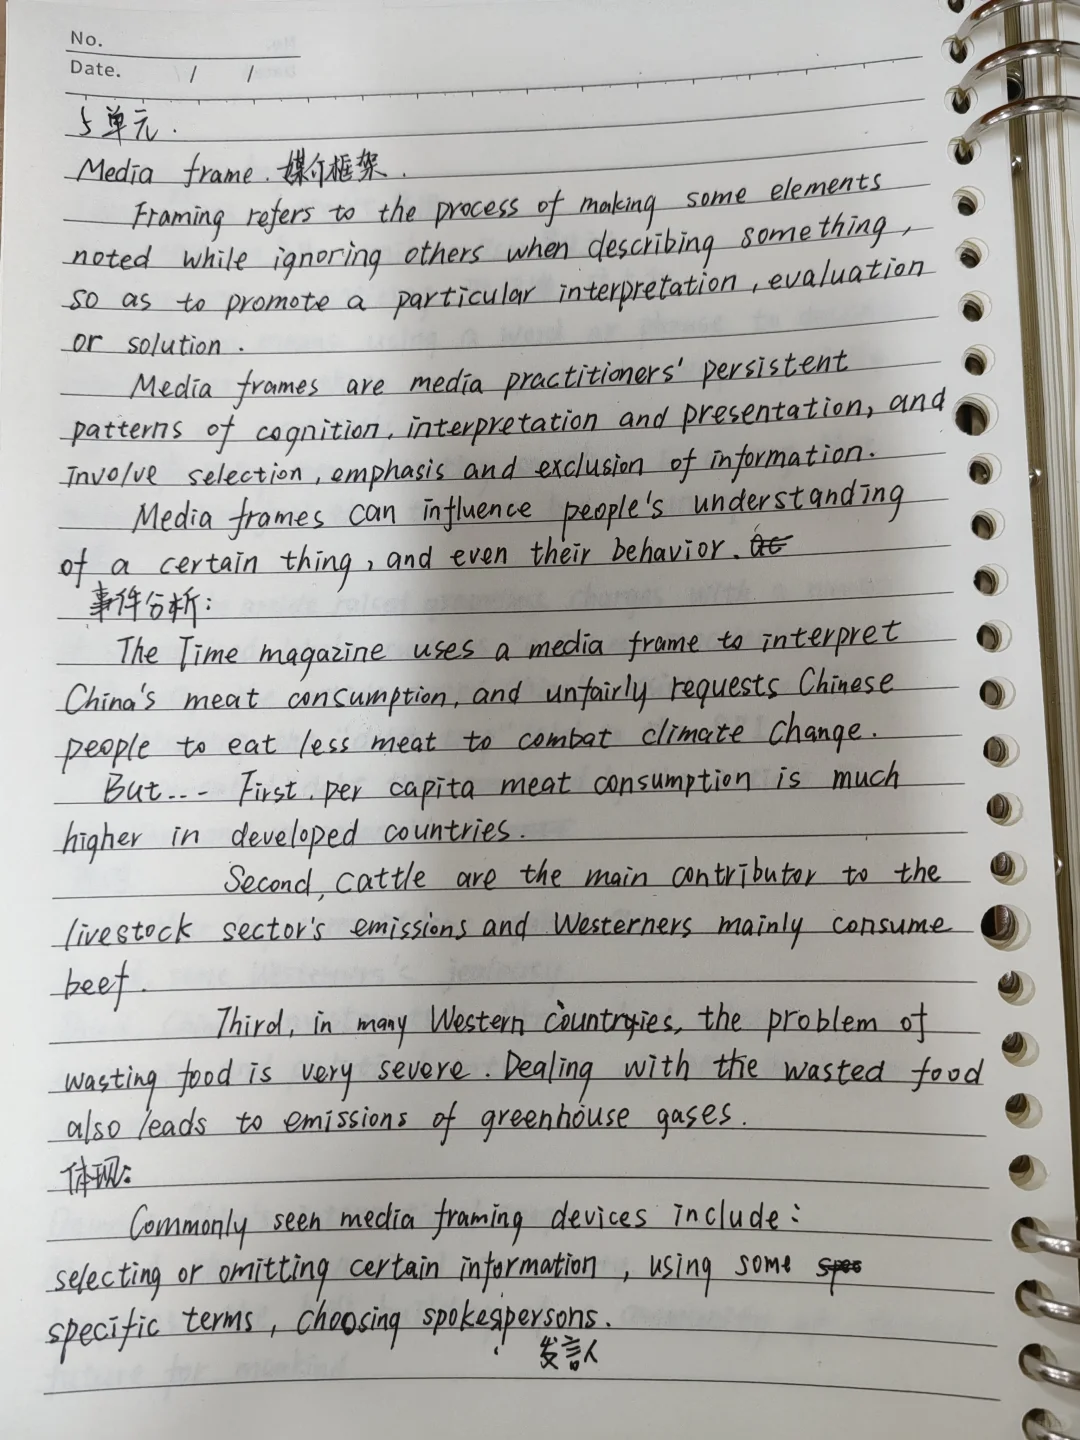 No.
Date. / /
5单元.
Media frame. 媒介框架.
Framing refers to the process of making some elements
noted while ignoring others when describing something,
so as to promote a particular interpretation, evaluation
or solution.
Media frames are media practitioners' persistent
patterns of cognition, interpretation and presentation, and
involve selection, emphasis and exclusion of information.
Media frames can influence people's understanding
of a certain thing, and even their behavior.
事件分析:
The Time magazine uses a media frame to interpret
China's meat consumption, and unfairly requests Chinese
people to eat less meat to combat climate Change.
But... First, per capita meat consumption is much
higher in developed countries.
Second, cattle are the main contributor to the
livestock sector's emissions and Westerners mainly consume
beef.
Third, in many Western countries, the problem of
wasting food is very severe. Dealing with the wasted food
also leads to emissions of greenhouse gases.
体现:
Commonly seen media framing devices include:
selecting or omitting certain information, using some
specific terms, choosing spokespersons.
发言人